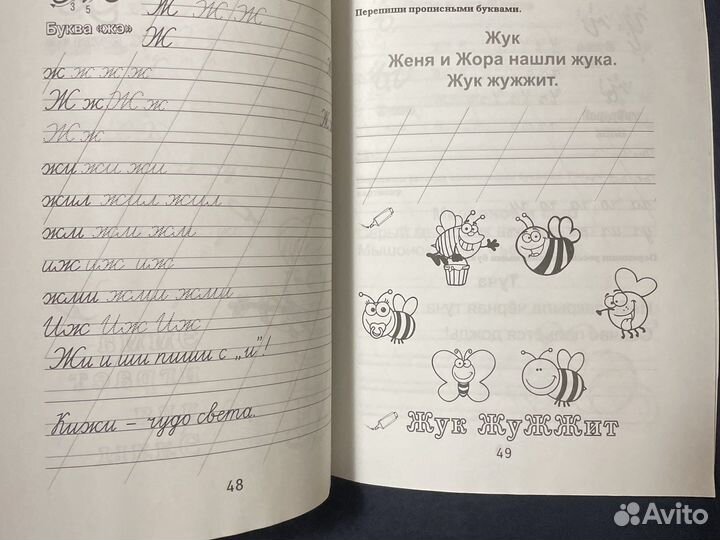 3 5
Ж Ж Ж Ж
Буква «жэ»
Ж
ж ж ж ж
Ж ж Ж ж
Ж ж
жи жи жи
жил жил жил
жм жм жм
иж иж иж
жми жми жми
Иж Иж Иж
Жи и ши пиши с „и”!
Кижи – чудо света.
48
Перепиши прописными буквами.
Жук
Женя и Жора нашли жука.
Жук жужжит.
Жук жуЖЖит
49
Avito